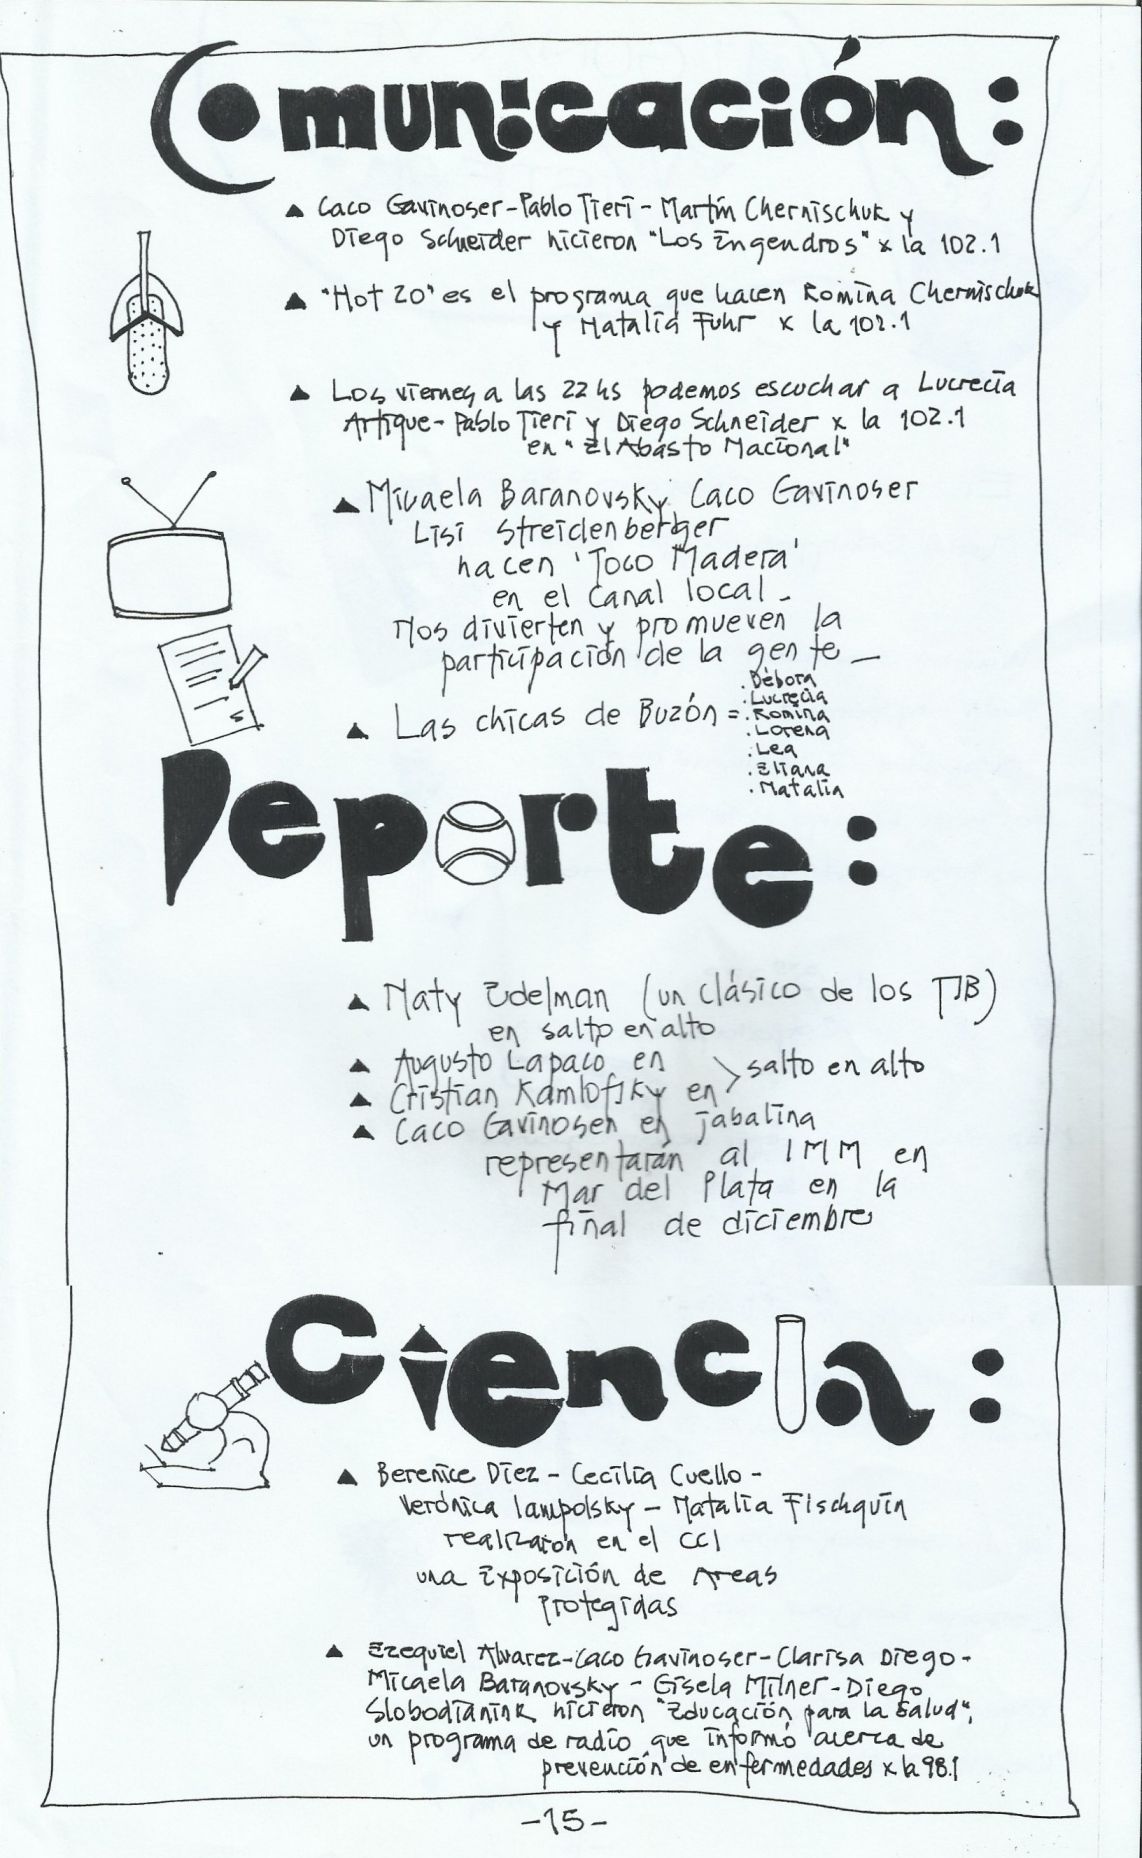 Comunicación:
▲ Caco Gavinoser - Pablo Tieri - Martín Chernischuk y
Diego Schneider hicieron "Los Engendros" x la 102.1
▲ "Hot 20" es el programa que hacen Romina Chernischuk
y Natalia Fuhr x la 102.1
▲ Los viernes a las 22 hs podemos escuchar a Lucrecia
Artique - Pablo Tieri y Diego Schneider x la 102.1
en "El Abasto Nacional"
▲ Micaela Baranovsky Caco Gavinoser
Lisi Streidenberger
hacen 'Toco Madera'
en el canal local -
Nos divierten y promueven la
participación de la gente -
▲ Las chicas de Buzón =
. Débora
. Lucrecia
. Romina
. Lorena
. Lea
. Eliana
. Natalia
Deporte:
▲ Naty Edelman (un clásico de los TJB)
en salto en alto
▲ Augusto Lapaco en > salto en alto
▲ Cristian Kamlofsky en
▲ Caco Gavinoser en jabalina
representarán al IMM en
Mar del Plata en la
final de diciembre
Ciencia:
▲ Berenice Díez - Cecilia Cuello -
Verónica Iampolsky - Natalia Fischquin
realizaron en el CCI
una Exposición de Areas
Protegidas
▲ Ezequiel Alvarez - Caco Gavinoser - Clarisa Diego -
Micaela Baranovsky - Gisela Milner - Diego
Slobodianink hicieron "Educación para la Salud",
un programa de radio que informó acerca de
prevención de enfermedades x la 98.1
-15-